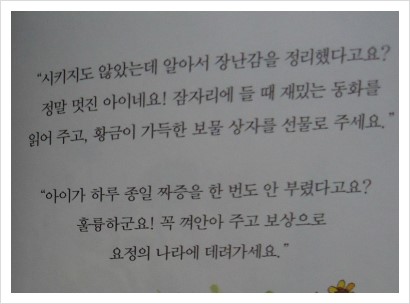 “시키지도 않았는데 알아서 장난감을 정리했다고요?
정말 멋진 아이네요! 잠자리에 들 때 재밌는 동화를
읽어 주고, 황금이 가득한 보물 상자를 선물로 주세요.”
“아이가 하루 종일 짜증을 한 번도 안 부렸다고요?
훌륭하군요! 꼭 껴안아 주고 보상으로
요정의 나라에 데려가세요.”